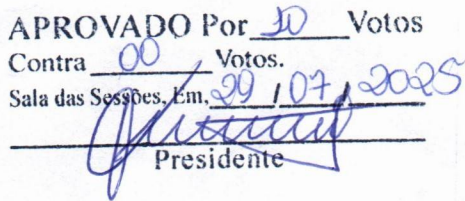 APROVADO Por 10 Votos
Contra 00 Votos.
Sala das Sessões, Em, 29 / 07 / 2025
Presidente